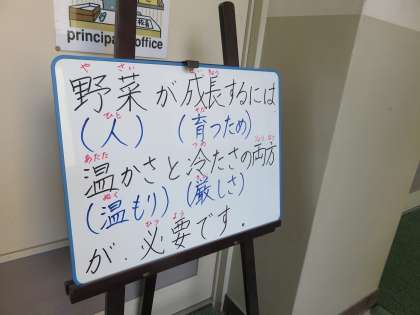 principal office
やさい せいちょう
野菜が成長するには
ひと そだ
(人) (育つため)
あたた つめ りょうほう
温かさと冷たさの両方
ぬく きび
(温もり)(厳しさ)
ひつ よう
が、必要です。